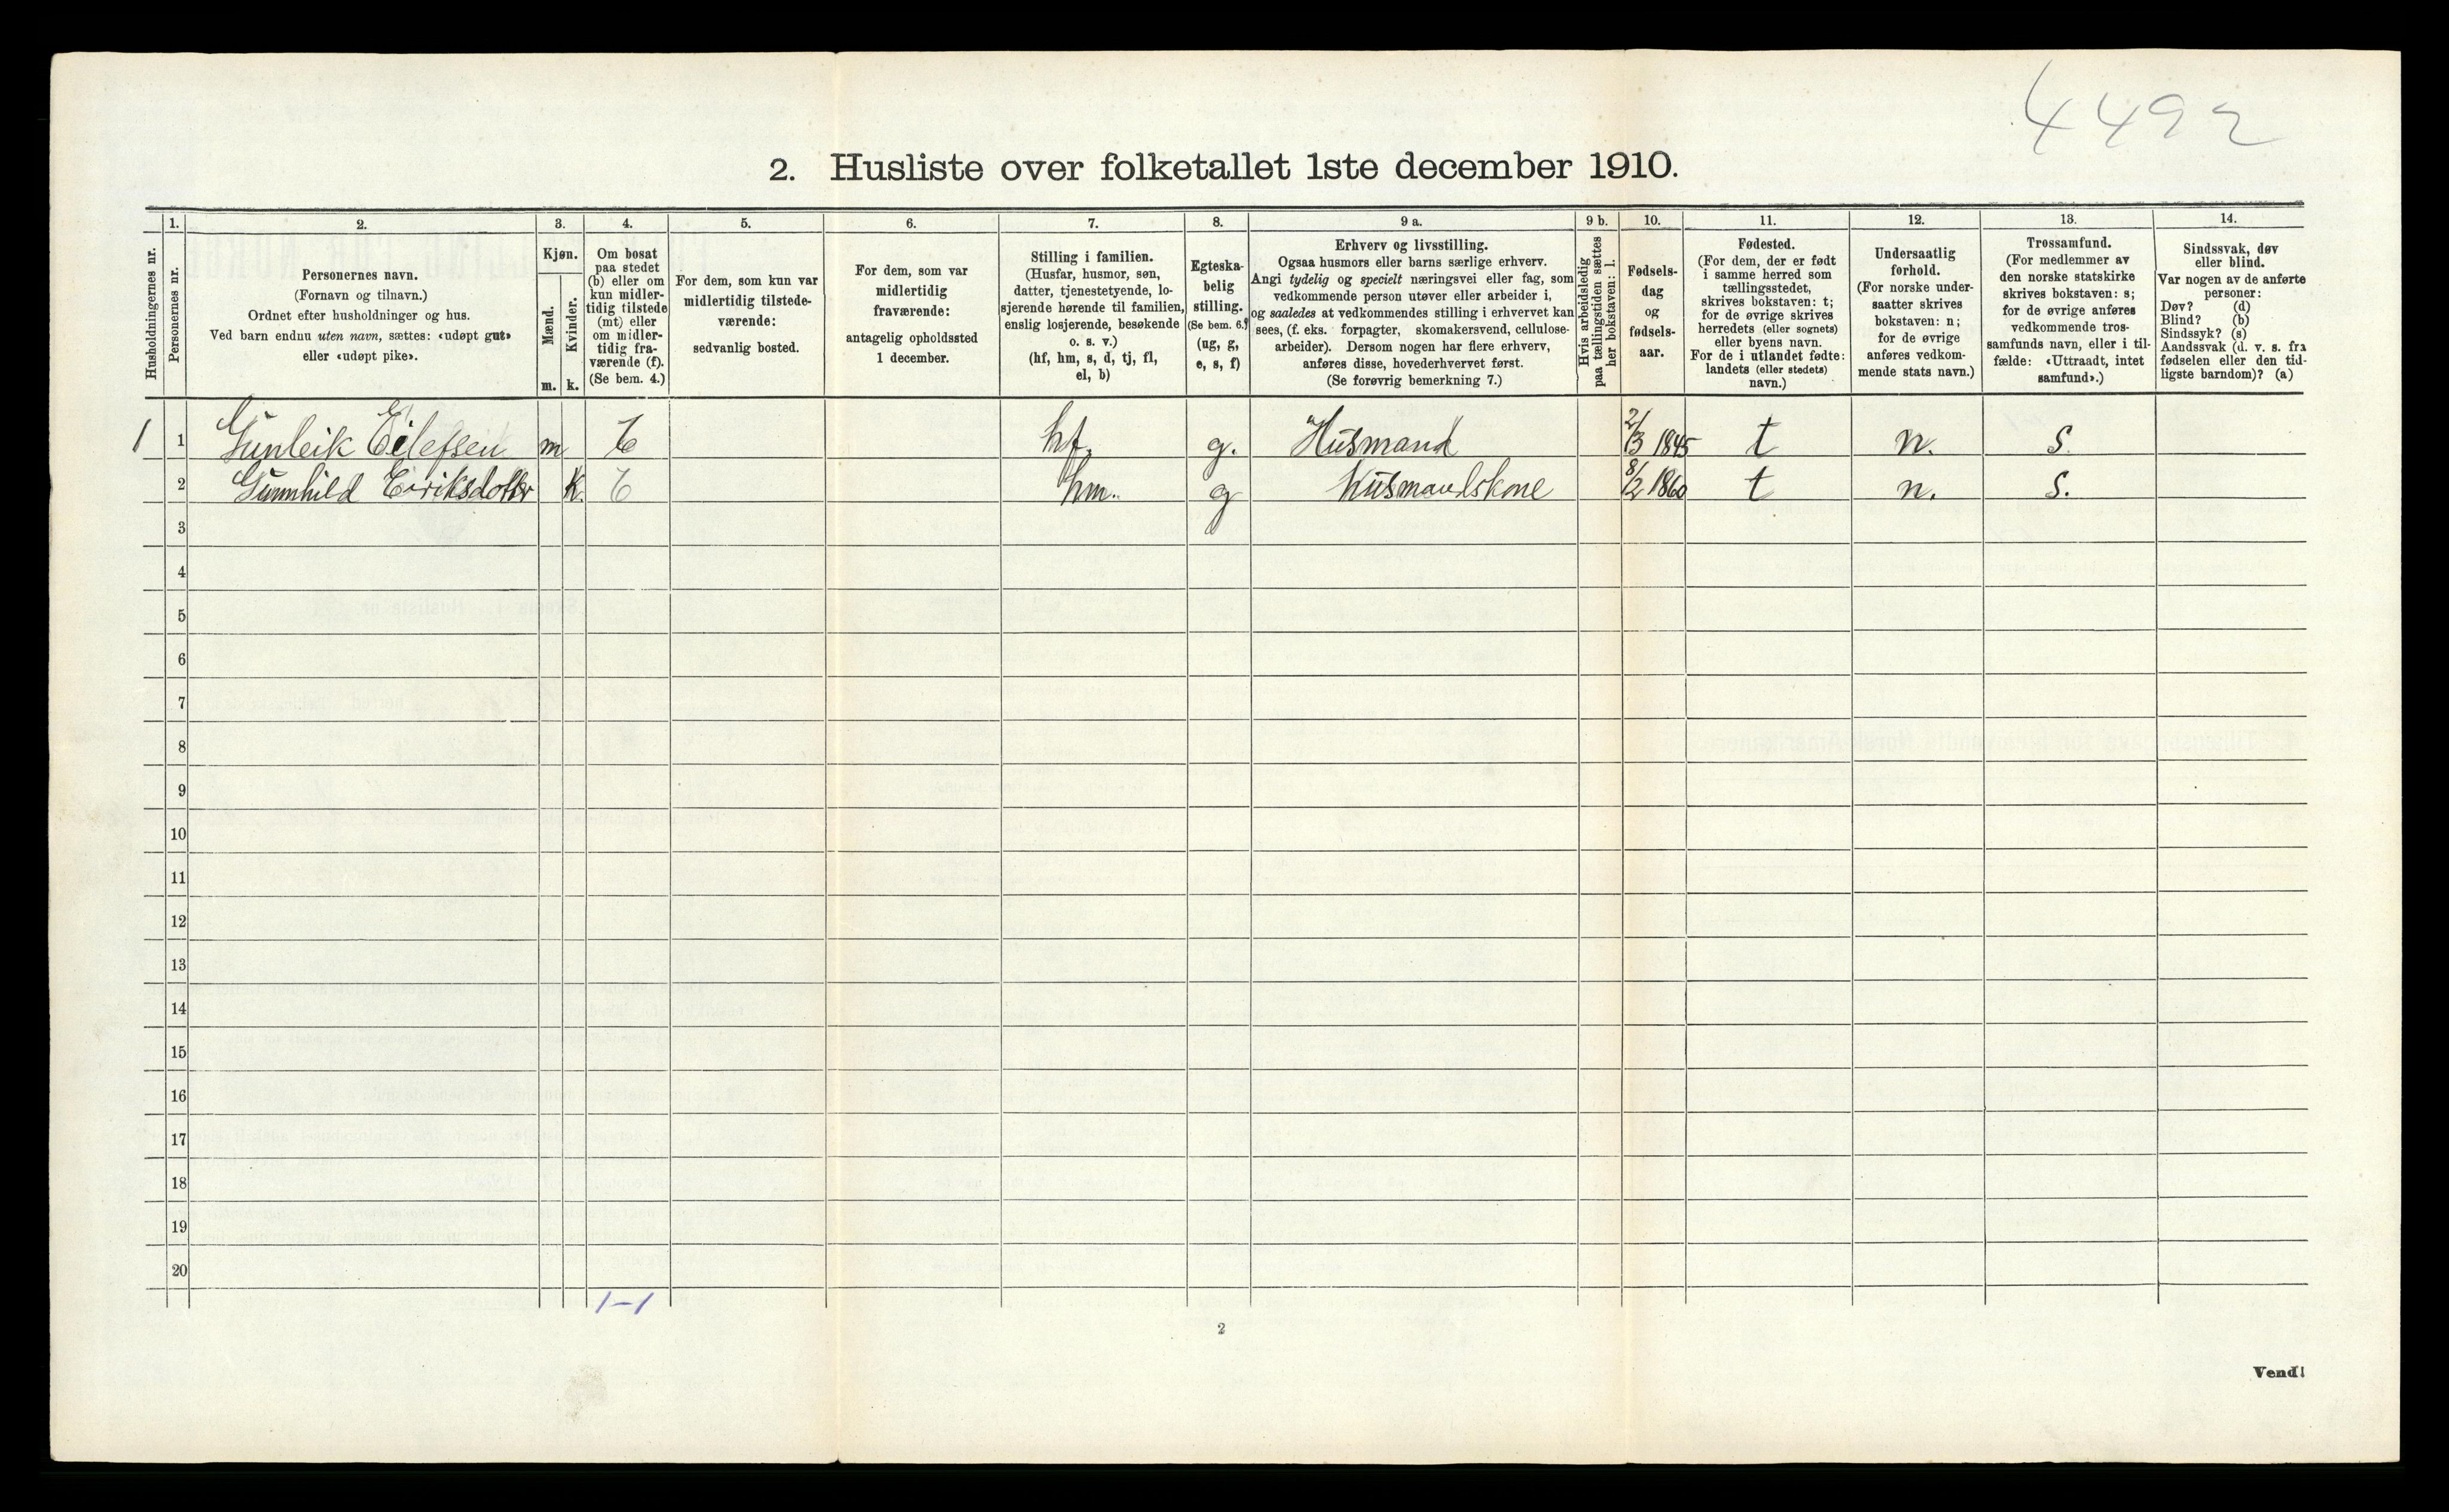 4492
2. Husliste over folketallet 1ste december 1910.
Husholdningernes nr.
1.
Personernes nr.
2.
Personernes navn.
(Fornavn og tilnavn.)
Ordnet efter husholdninger og hus.
Ved barn endnu uten navn, sættes: «udøpt gut»
eller «udøpt pike».
3.
Kjøn.
Mænd.
m.
Kvinder.
k.
4.
Om bosat
paa stedet
(b) eller om
kun midler-
tidig tilstede
(mt) eller
om midler-
tidig fra-
værende (f).
(Se bem. 4.)
5.
For dem, som kun var
midlertidig tilstede-
værende:
sedvanlig bosted.
6.
For dem, som var
midlertidig
fraværende:
antagelig opholdssted
1 december.
7.
Stilling i familien.
(Husfar, husmor, søn,
datter, tjenestetyende, lo-
sjerende hørende til familien,
enslig losjerende, besøkende
o. s. v.)
(hf, hm, s, d, tj, fl,
el, b)
8.
Egteska-
belig
stilling.
(Se bem. 6.)
(ug, g,
e, s, f)
9 a.
Erhverv og livsstilling.
Ogsaa husmors eller barns særlige erhverv.
Angi tydelig og specielt næringsvei eller fag, som
vedkommende person utøver eller arbeider i,
og saaledes at vedkommendes stilling i erhvervet kan
sees, (f. eks. forpagter, skomakersvend, cellulose-
arbeider). Dersom nogen har flere erhverv,
anføres disse, hovederhvervet først.
(Se forøvrig bemerkning 7.)
9 b.
Hvis arbeidsledig
paa tællingstiden sættes
her bokstaven: l.
10.
Fødsels-
dag
og
fødsels-
aar.
11.
Fødested.
(For dem, der er født
i samme herred som
tællingsstedet,
skrives bokstaven: t;
for de øvrige skrives
herredets (eller sognets)
eller byens navn.
For de i utlandet fødte:
landets (eller stedets)
navn.)
12.
Undersaatlig
forhold.
(For norske under-
saatter skrives
bokstaven: n;
for de øvrige
anføres vedkom-
mende stats navn.)
13.
Trossamfund.
(For medlemmer av
den norske statskirke
skrives bokstaven: s;
for de øvrige anføres
vedkommende tros-
samfunds navn, eller i til-
fælde: «Uttraadt, intet
samfund».)
14.
Sindssvak, døv
eller blind.
Var nogen av de anførte
personer:
Døv? (d)
Blind? (b)
Sindssyk? (s)
Aandssvak (d. v. s. fra
fødselen eller den tid-
ligste barndom)? (a)
1 1 Gunleik Eilefsen m b hf. g. Husmand 2/3 1845 t n. s.
2 Gunnhild Eiriksdotter K. b hm. g Husmandskone 8/2 1860 t n. s.
3
4
5
6
7
8
9
10
11
12
13
14
15
16
17
18
19
20
1-1
2
Vend!